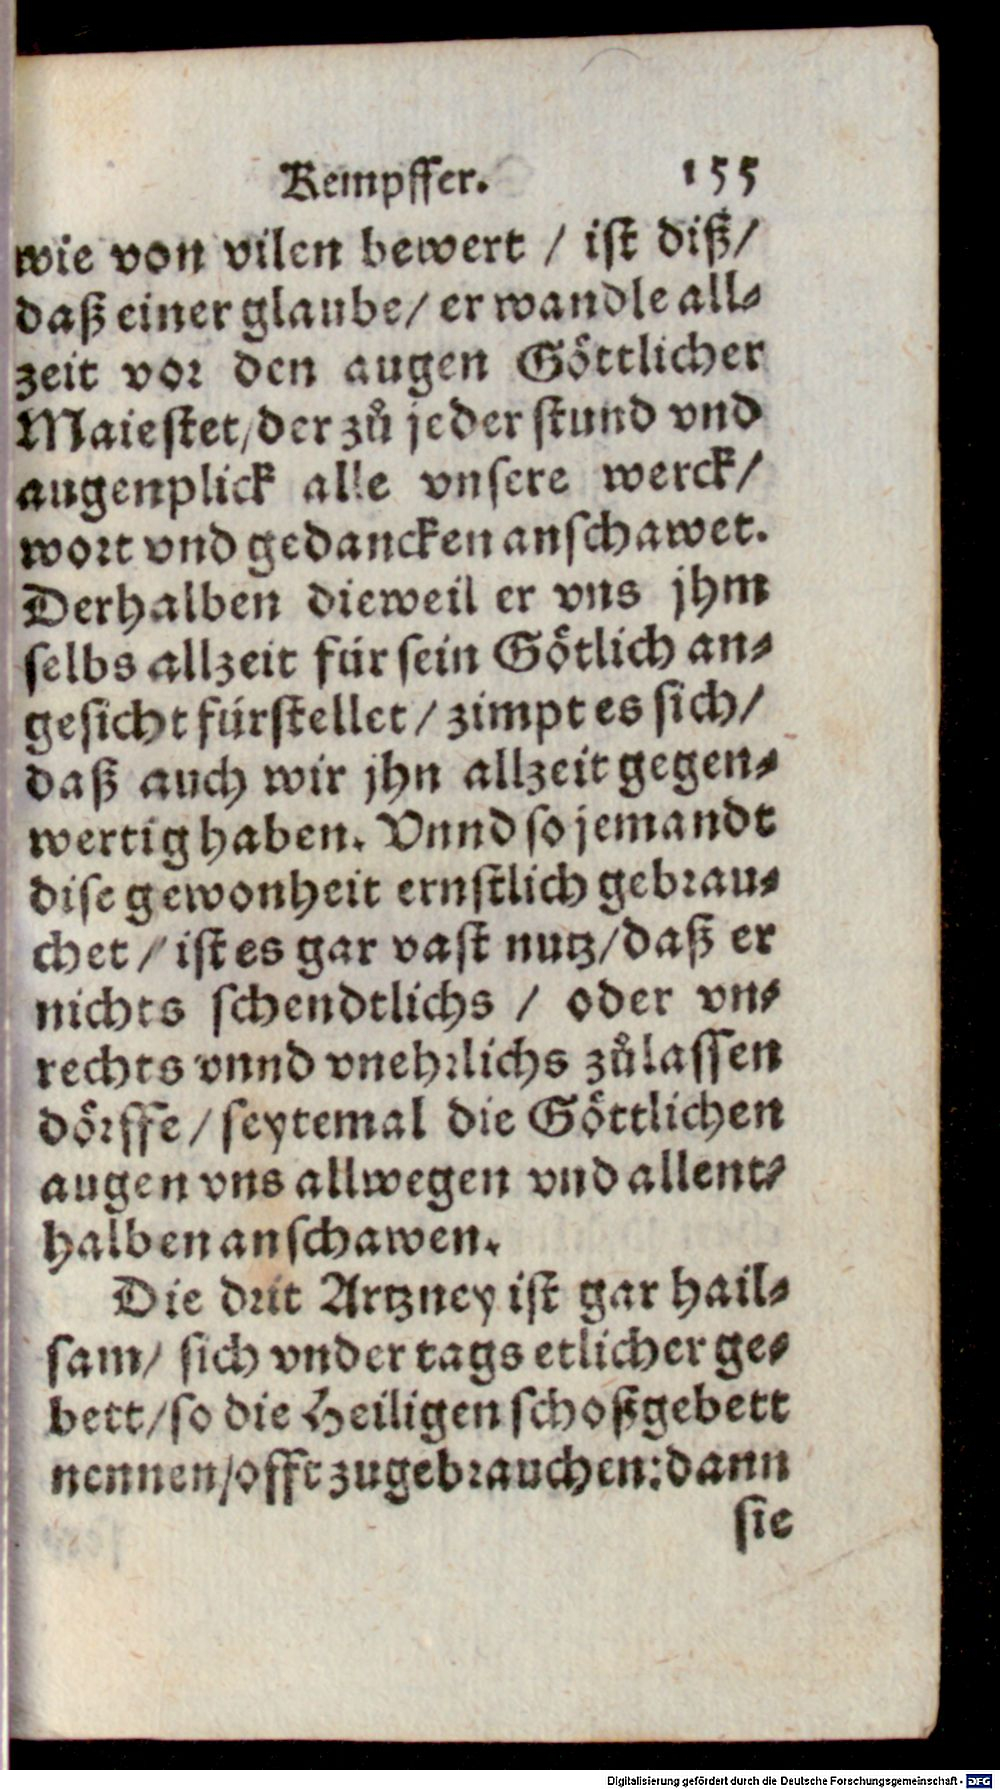 Kempffer. 155
wie von vilen bewert / ist diß/
daß einer glaube/ er wandle all⸗
zeit vor den augen Goͤttlicher
Maiestet/der zuͦ jeder stund vnd
augenplick alle vnsere werck/
wort vnd gedancken anschawet.
Derhalben dieweil er vns jhm
selbs allzeit für sein Goͤtlich an⸗
gesicht fürstellet / zimpt es sich/
daß auch wir jhn allzeit gegen⸗
wertig haben. Vnnd so jemandt
dise gewonheit ernstlich gebrau⸗
chet / ist es gar vast nutz/daß er
nichts schendtlichs / oder vn⸗
rechts vnnd vnehrlichs zuͦlassen
doͤrffe / seytemal die Goͤttlichen
augen vns allwegen vnd allent⸗
halben anschawen.
Die drit Artzney ist gar hail⸗
sam/ sich vnder tags etlicher ge⸗
bett/so die Heiligen schoßgebett
nennen/offt zugebrauchen: dann
sie
Digitalisierung gefördert durch die Deutsche Forschungsgemeinschaft - DFG